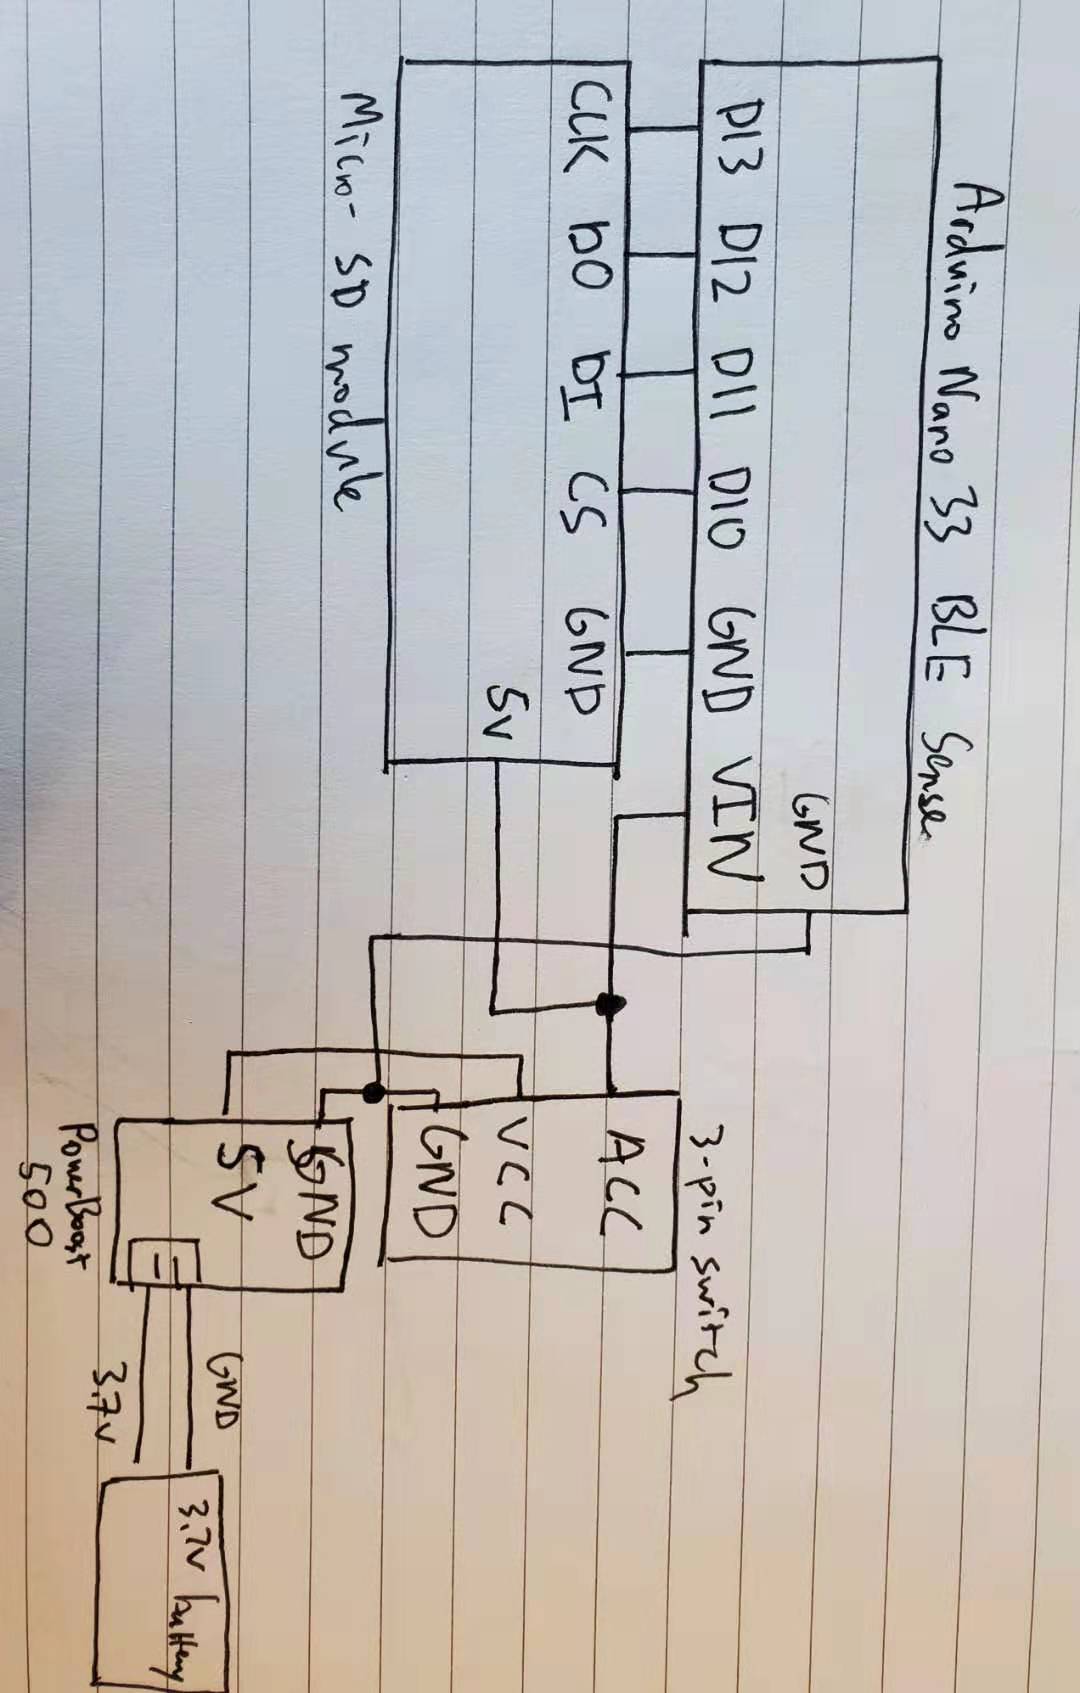 Arduino Nano 33 BLE Sense
D13 D12 D11 D10 GND VIN
GND
CLK DO DI CS GND
5V
Micro-SD module
3-pin switch
ACC
VCC
GND
GND
5V
PowerBoost
500
GND
3.7V
3.7V battery